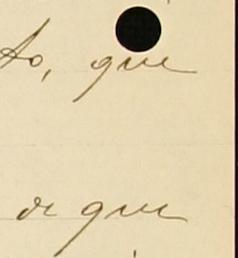 to, que
de que